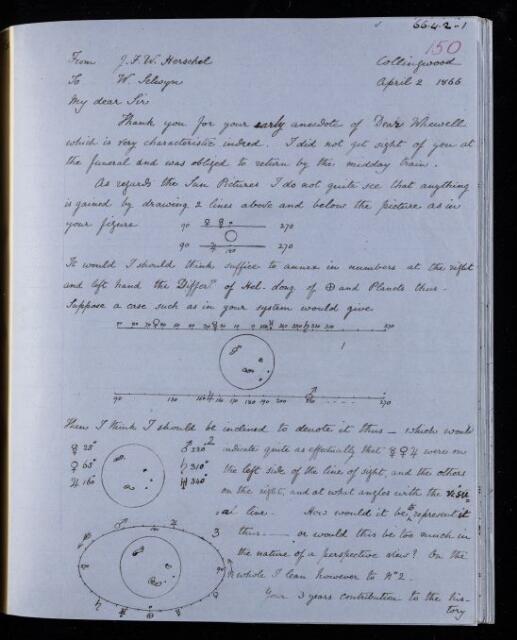 66.4.2-1
150
From J. F. W. Herschel Collingwood
To W. Selwyn April 2 1866
My dear Sir
Thank you for your early anecdote of Dear Whewell
which is very characteristic indeed. I did not get sight of you at
the funeral and was obliged to return by the midday train.
As regards the Sun Pictures I do not quite see that anything
is gained by drawing 2 lines above and below the picture as in
your figure 90 ☿ ♀ 270
90 ♃ 180 270
It would I should think suffice to annex in numbers at the right
and left hand the Differ.s of Hel. Long of ⊕ and Planets thus.
Suppose a case such as in your system would give
270
90 130 160 170 180 190 200 ♂ 270
Then I think I should be inclined to denote it thus – which would
☿ 25° ♂ 220° 2 indicate quite as effectually that ☿ ♀ ♃ were on
♀ 65° ♄ 310° the left side of the line of sight, and the others
♃ 160° ♅ 340° on the right, and at what angles with the visu-
al line. How would it be to represent it
3 thus – or would this be too much in
the nature of a perspective view? On the
whole I lean however to No 2.
Your 3 years contribution to the his-
tory